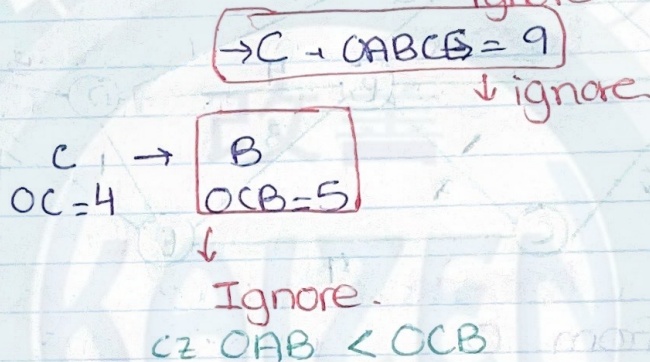 →C , OABCE = 9
↓ ignore
C → B
OC=4 OCB=5
↓
Ignore.
cz OAB < OCB